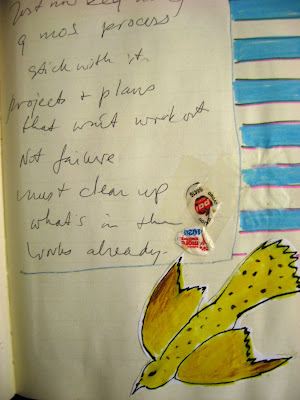 9 mos process
stick with it.
projects + plans
that won't work out
Not failure
must clean up
what's in the
works already.